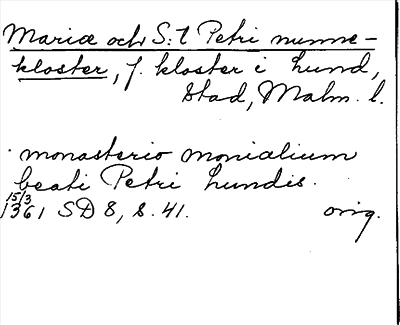 Mariæ och S:t Petri nunne-
kloster, f. kloster i Lund,
stad, Malm. l.
monasterio monialium
beati Petri Lundis.
15/3 1361 SD 8, s. 41. orig.